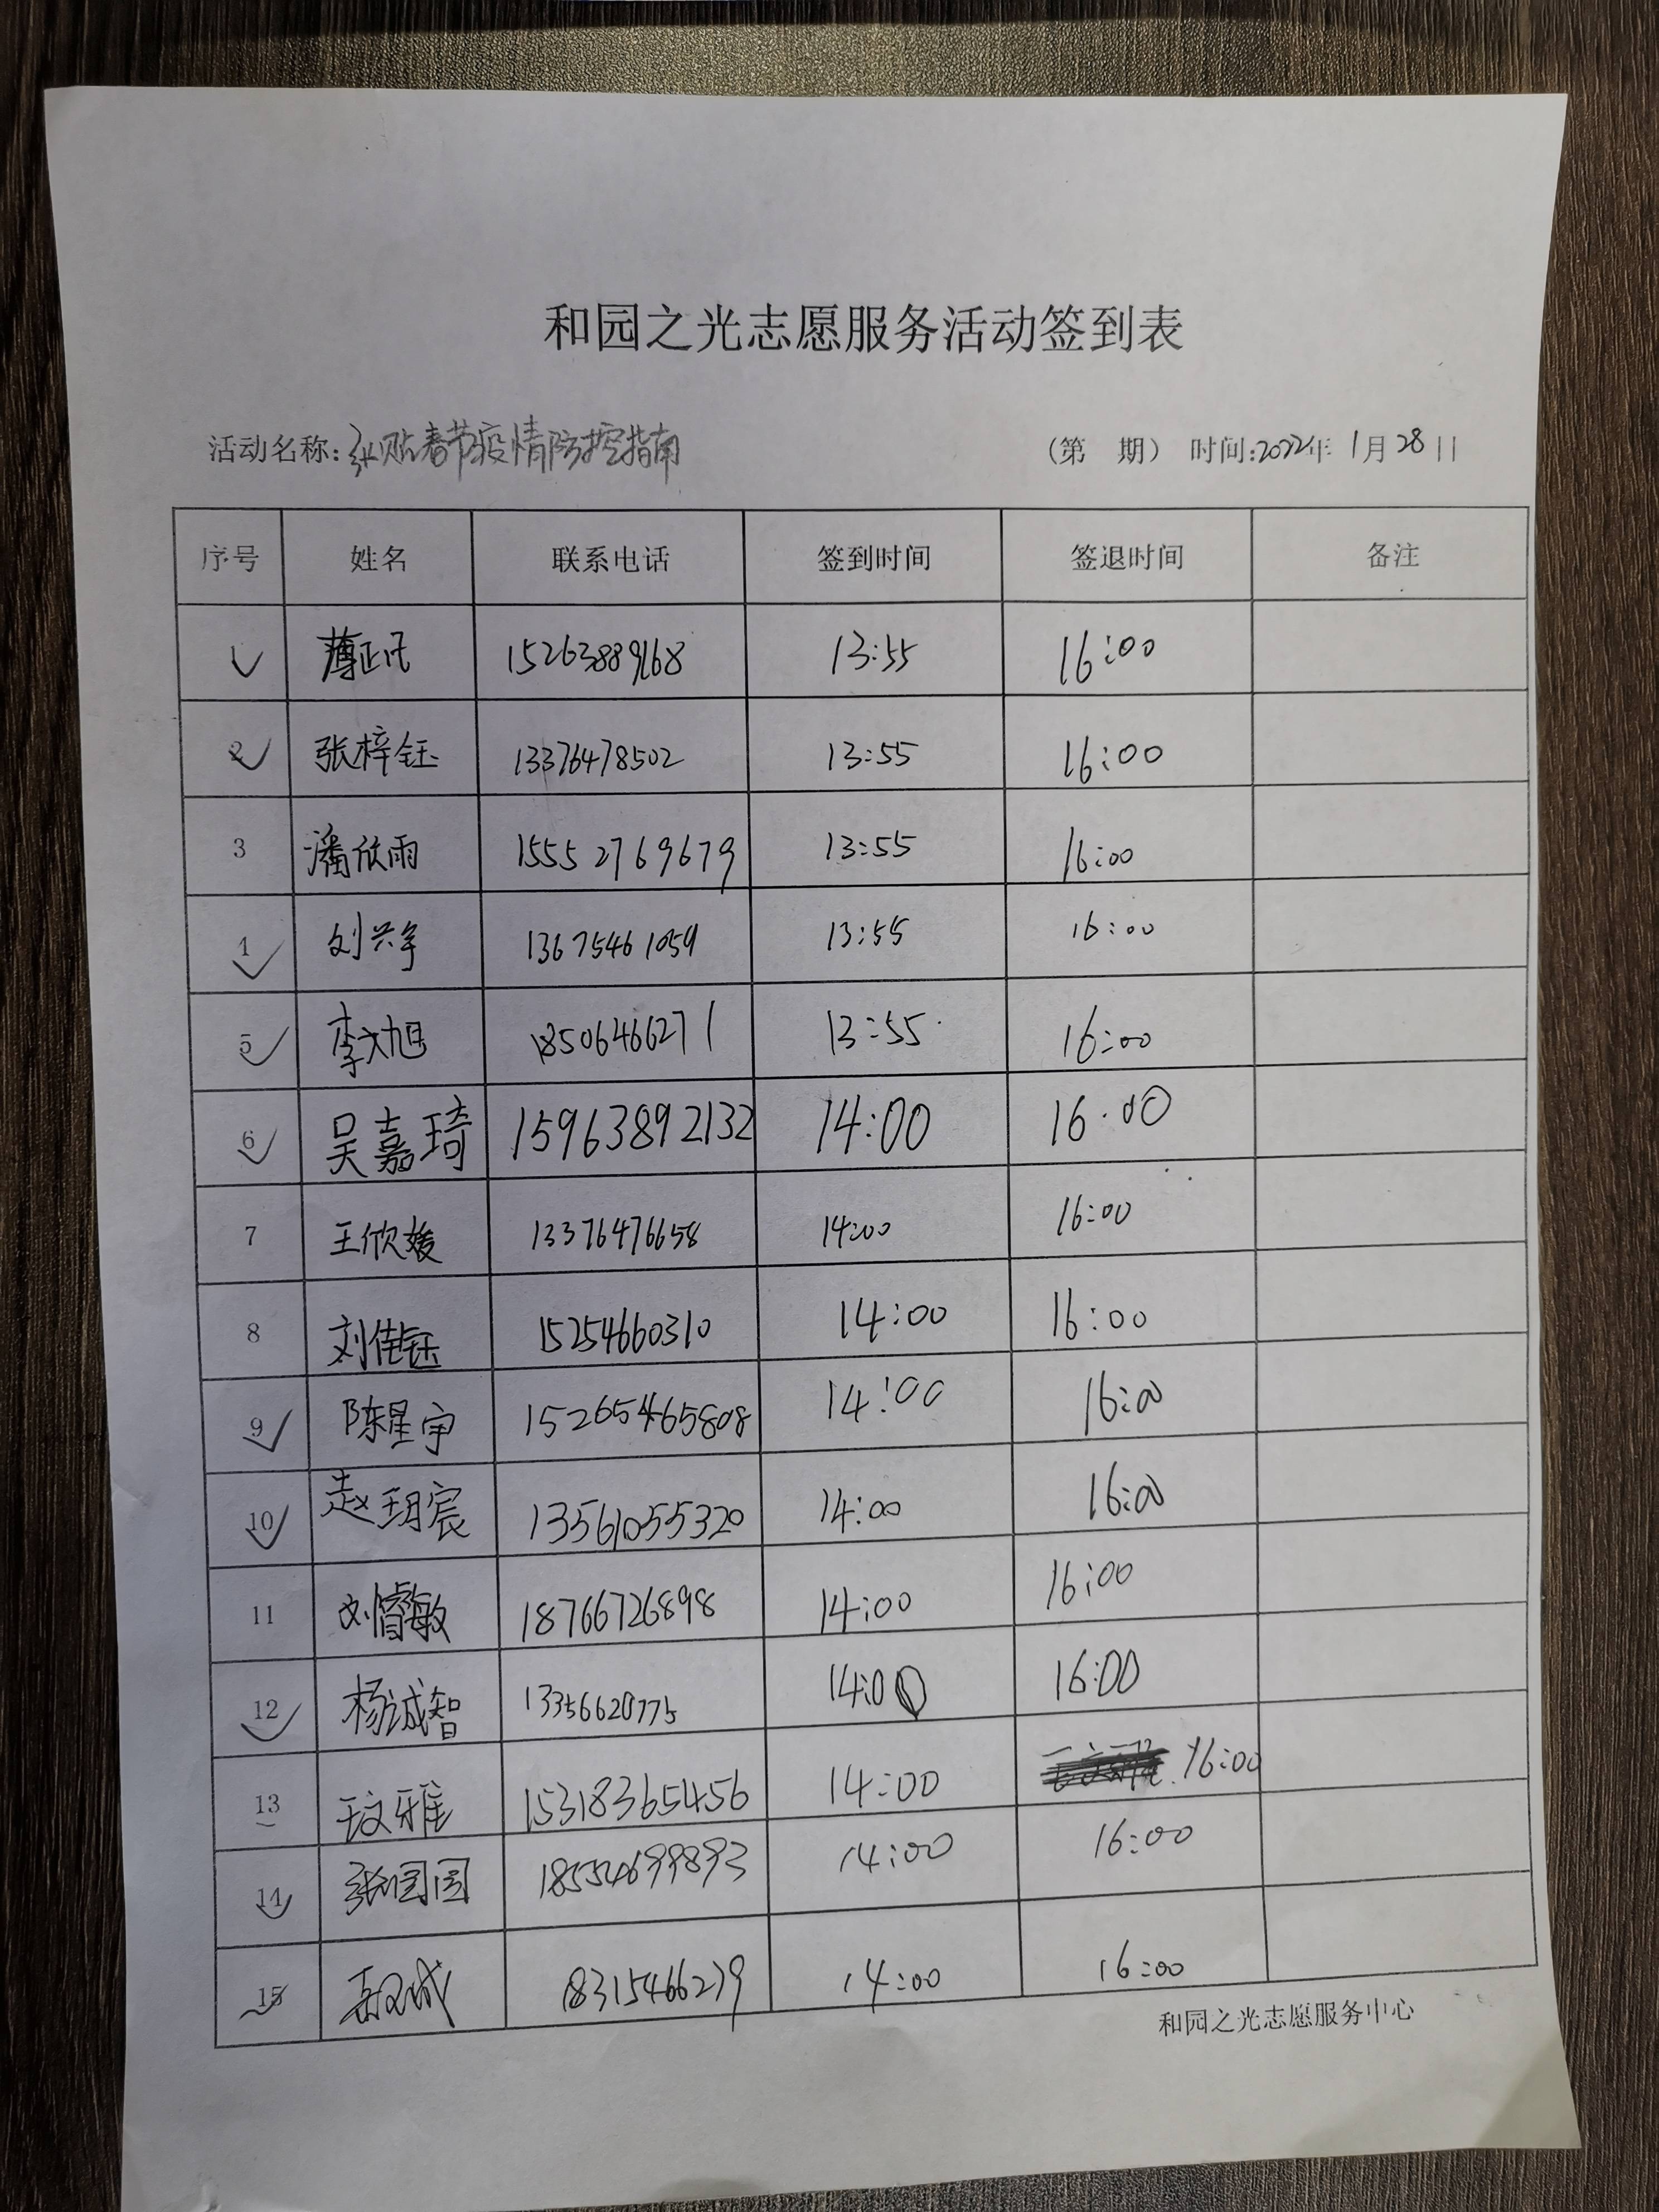 和园之光志愿服务活动签到表
活动名称:张贴春节疫情防控指南 (第 期) 时间:2022年 1月28日
序号 姓名 联系电话 签到时间 签退时间 备注
1 15263889168 13:55 16:00
2 张梓钰 13376478502 13:55 16:00
3 潘欣雨 15552769679 13:55 16:00
4 刘兴宇 13675461059 13:55 16:00
5 李文旭 18506466271 13:55 16:00
6 吴嘉琦 15963892132 14:00 16:00
7 王欣媛 13376476658 14:00 16:00
8 刘佳钰 15254660310 14:00 16:00
9 陈星宇 15265465808 14:00 16:00
10 赵玥宸 13561055320 14:00 16:00
11 刘睿敏 18766726898 14:00 16:00
12 杨诚智 13356620775 14:00 16:00
13 王文雅 15318365456 14:00 16:00
14 18554699893 14:00 16:00
15 18315466279 14:00 16:00
和园之光志愿服务中心